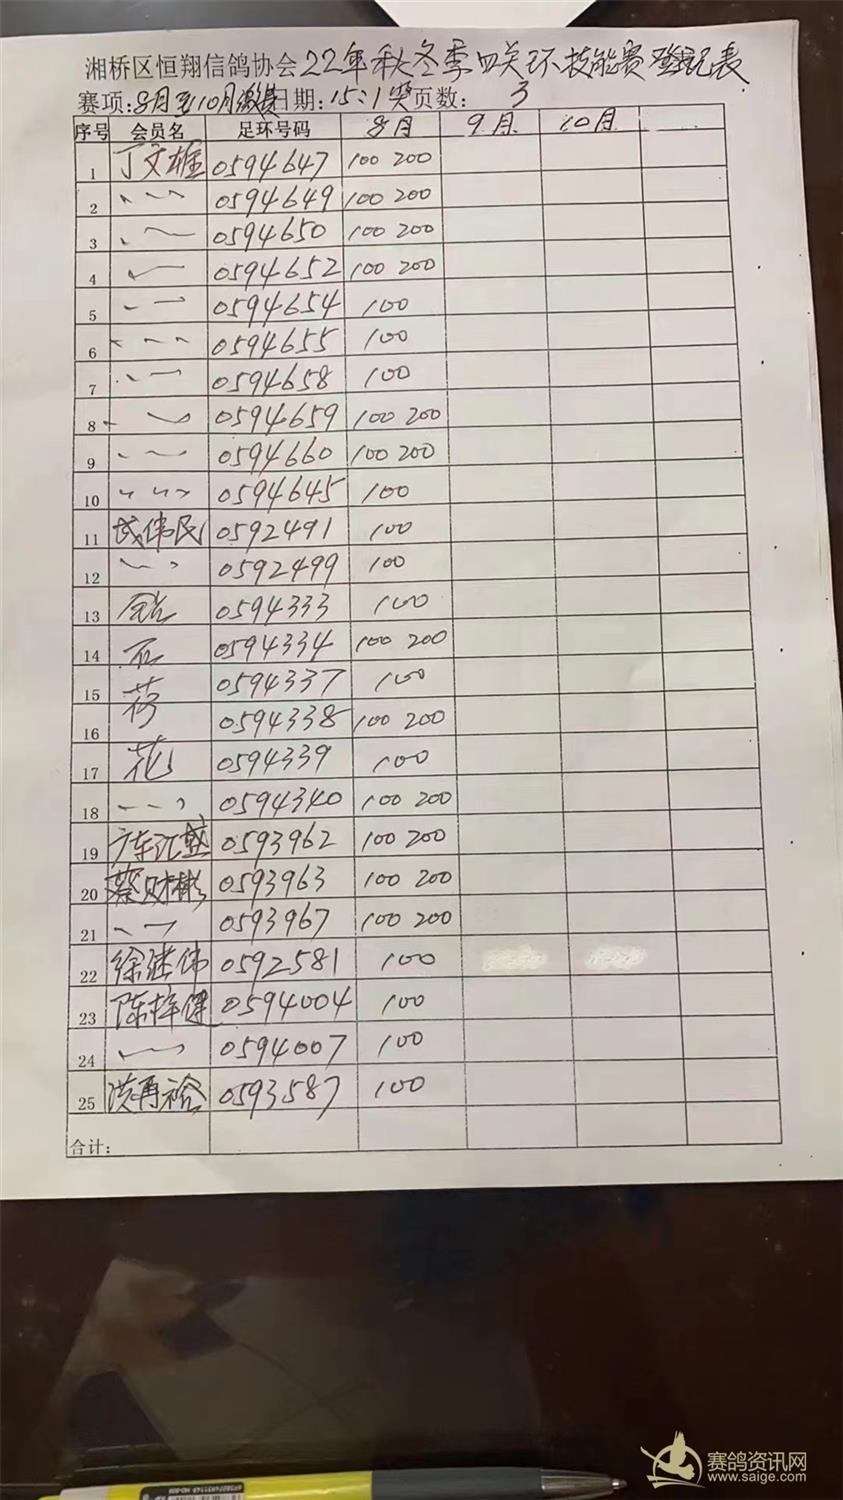 湘桥区恒翔信鸽协会22年秋冬季四关环技能赛登记表
赛项:8月至10月缴费日期:15:1奖页数: 3
序号 会员名 足环号码 8月 9月 10月
1 丁文雄 0594647 100 200
2 0594649 100 200
3 0594650 100 200
4 0594652 100 200
5 0594654 100
6 0594655 100
7 0594658 100
8 0594659 100 200
9 0594660 100 200
10 0594645 100
11 成伟民 0592491 100
12 0592499 100
13 0594333 100
14 0594334 100 200
15 荷 0594337 100
16 0594338 100 200
17 花 0594339 100
18 0594340 100 200
19 广东汇盛 0593962 100 200
20 蔡财彬 0593963 100 200
21 0593967 100 200
22 徐继伟 0592581 100
23 陈梓健 0594004 100
24 0594007 100
25 洪再裕 0593587 100
合计:
赛鸽资讯网
www.saige.com